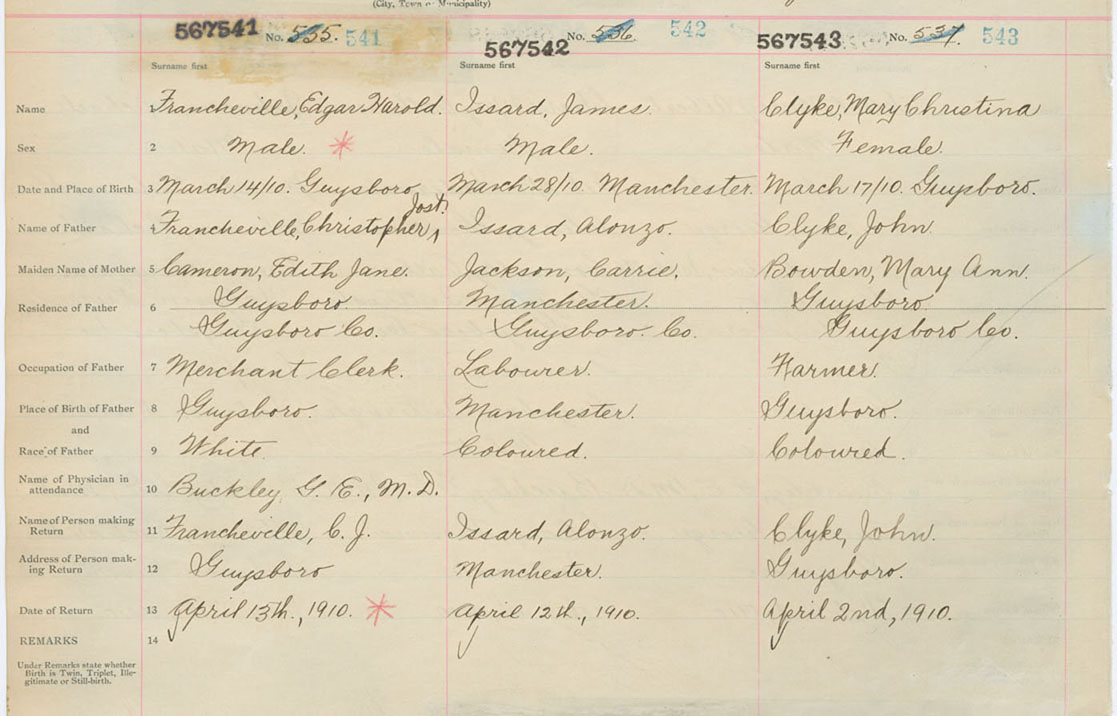 (City, Town or Municipality)
567541 No. 535. 541 567542 No. 536. 542 567543 No. 537. 543
Surname first Surname first Surname first
Name 1 Francheville, Edgar Harold. Issard, James. Clyke, Mary Christina
Sex 2 Male. * Male. Female.
Date and Place of Birth 3 March 14/10. Guysboro March 28/10. Manchester. March 17/10. Guysboro.
Jost.
Name of Father 4 Francheville, Christopher ^ Issard, Alonzo. Clyke, John
Maiden Name of Mother 5 Cameron, Edith Jane. Jackson, Carrie. Bowden, Mary Ann.
Residence of Father 6 Guysboro Manchester. Guysboro
Guysboro Co. Guysboro. Co. Guysboro Co.
Occupation of Father 7 Merchant Clerk. Labourer. Farmer.
Place of Birth of Father 8 Guysboro. Manchester. Guysboro.
and
Race of Father 9 White. Coloured. Coloured.
Name of Physician in
attendance 10 Buckley, G. E., M. D.
Name of Person making
Return 11 Francheville, C. J. Issard, Alonzo. Clyke, John.
Address of Person mak-
ing Return 12 Guysboro Manchester. Guysboro.
Date of Return 13 April 13th., 1910. * April 12th., 1910. April 2nd, 1910.
REMARKS 14
Under Remarks state whether
Birth is Twin, Triplet, Ille-
gitimate or Still-birth.